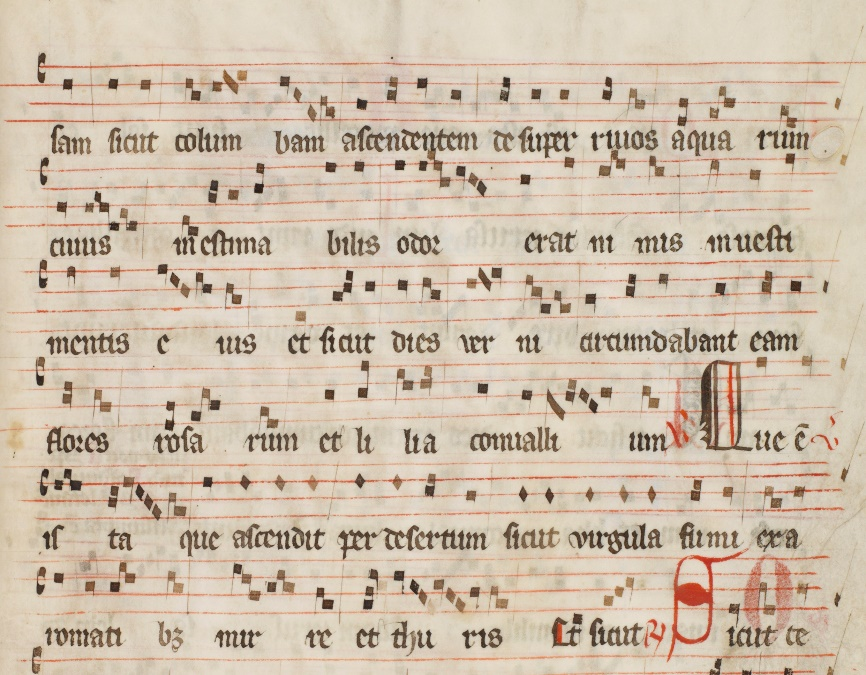 sam sicut colum bam ascendentem desuper riuos aqua rum
cuius inestima bilis odor erat ni mis inuesti
mentis e ius et sicut dies ver ni circumdabant eam
flores rosa rum et li lia conualli um ℣ Que ē
is ta que ascendit per desertum sicut virgula fumi exa
romati bꝫ mir re et thu ris Et sicut ℟ Sicut ce